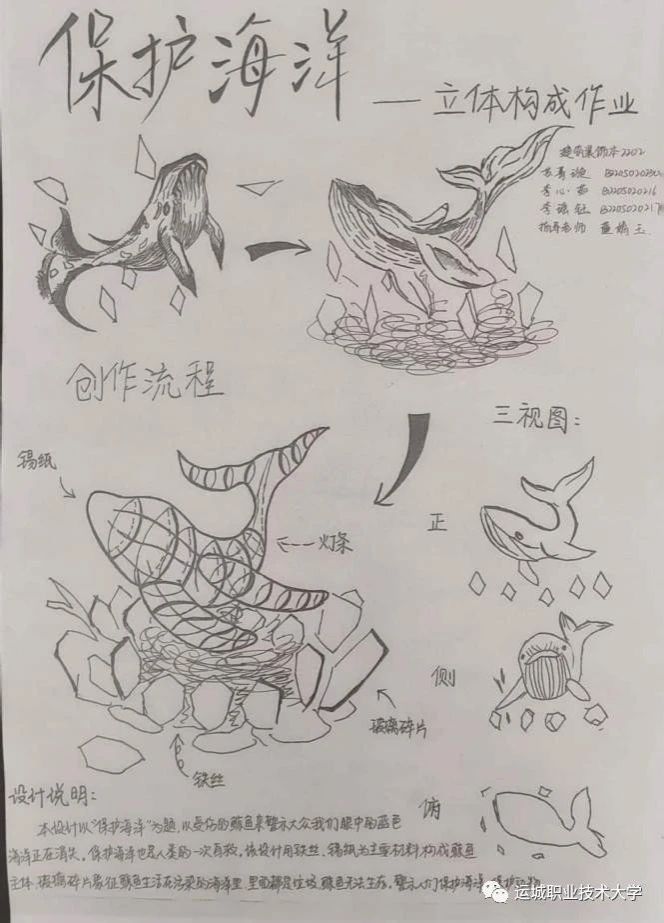 保护海洋
——立体构成作业
建筑装饰本2202
指导老师
创作流程
三视图：
锡纸
灯条
正
侧
玻璃碎片
铁丝
俯
设计说明：
本设计以"保护海洋"为题，以受伤的鲸鱼来警示大众我们眼中的蓝色
海洋正在消失。保护海洋也是人类的一次自救。该设计用铁丝、锡纸为主要材料构成鲸鱼
主体，玻璃碎片象征鲸鱼生活在污染的海洋里，里面都是垃圾鲸鱼无法生存，警示人们保护海洋，保护动物
运城职业技术大学